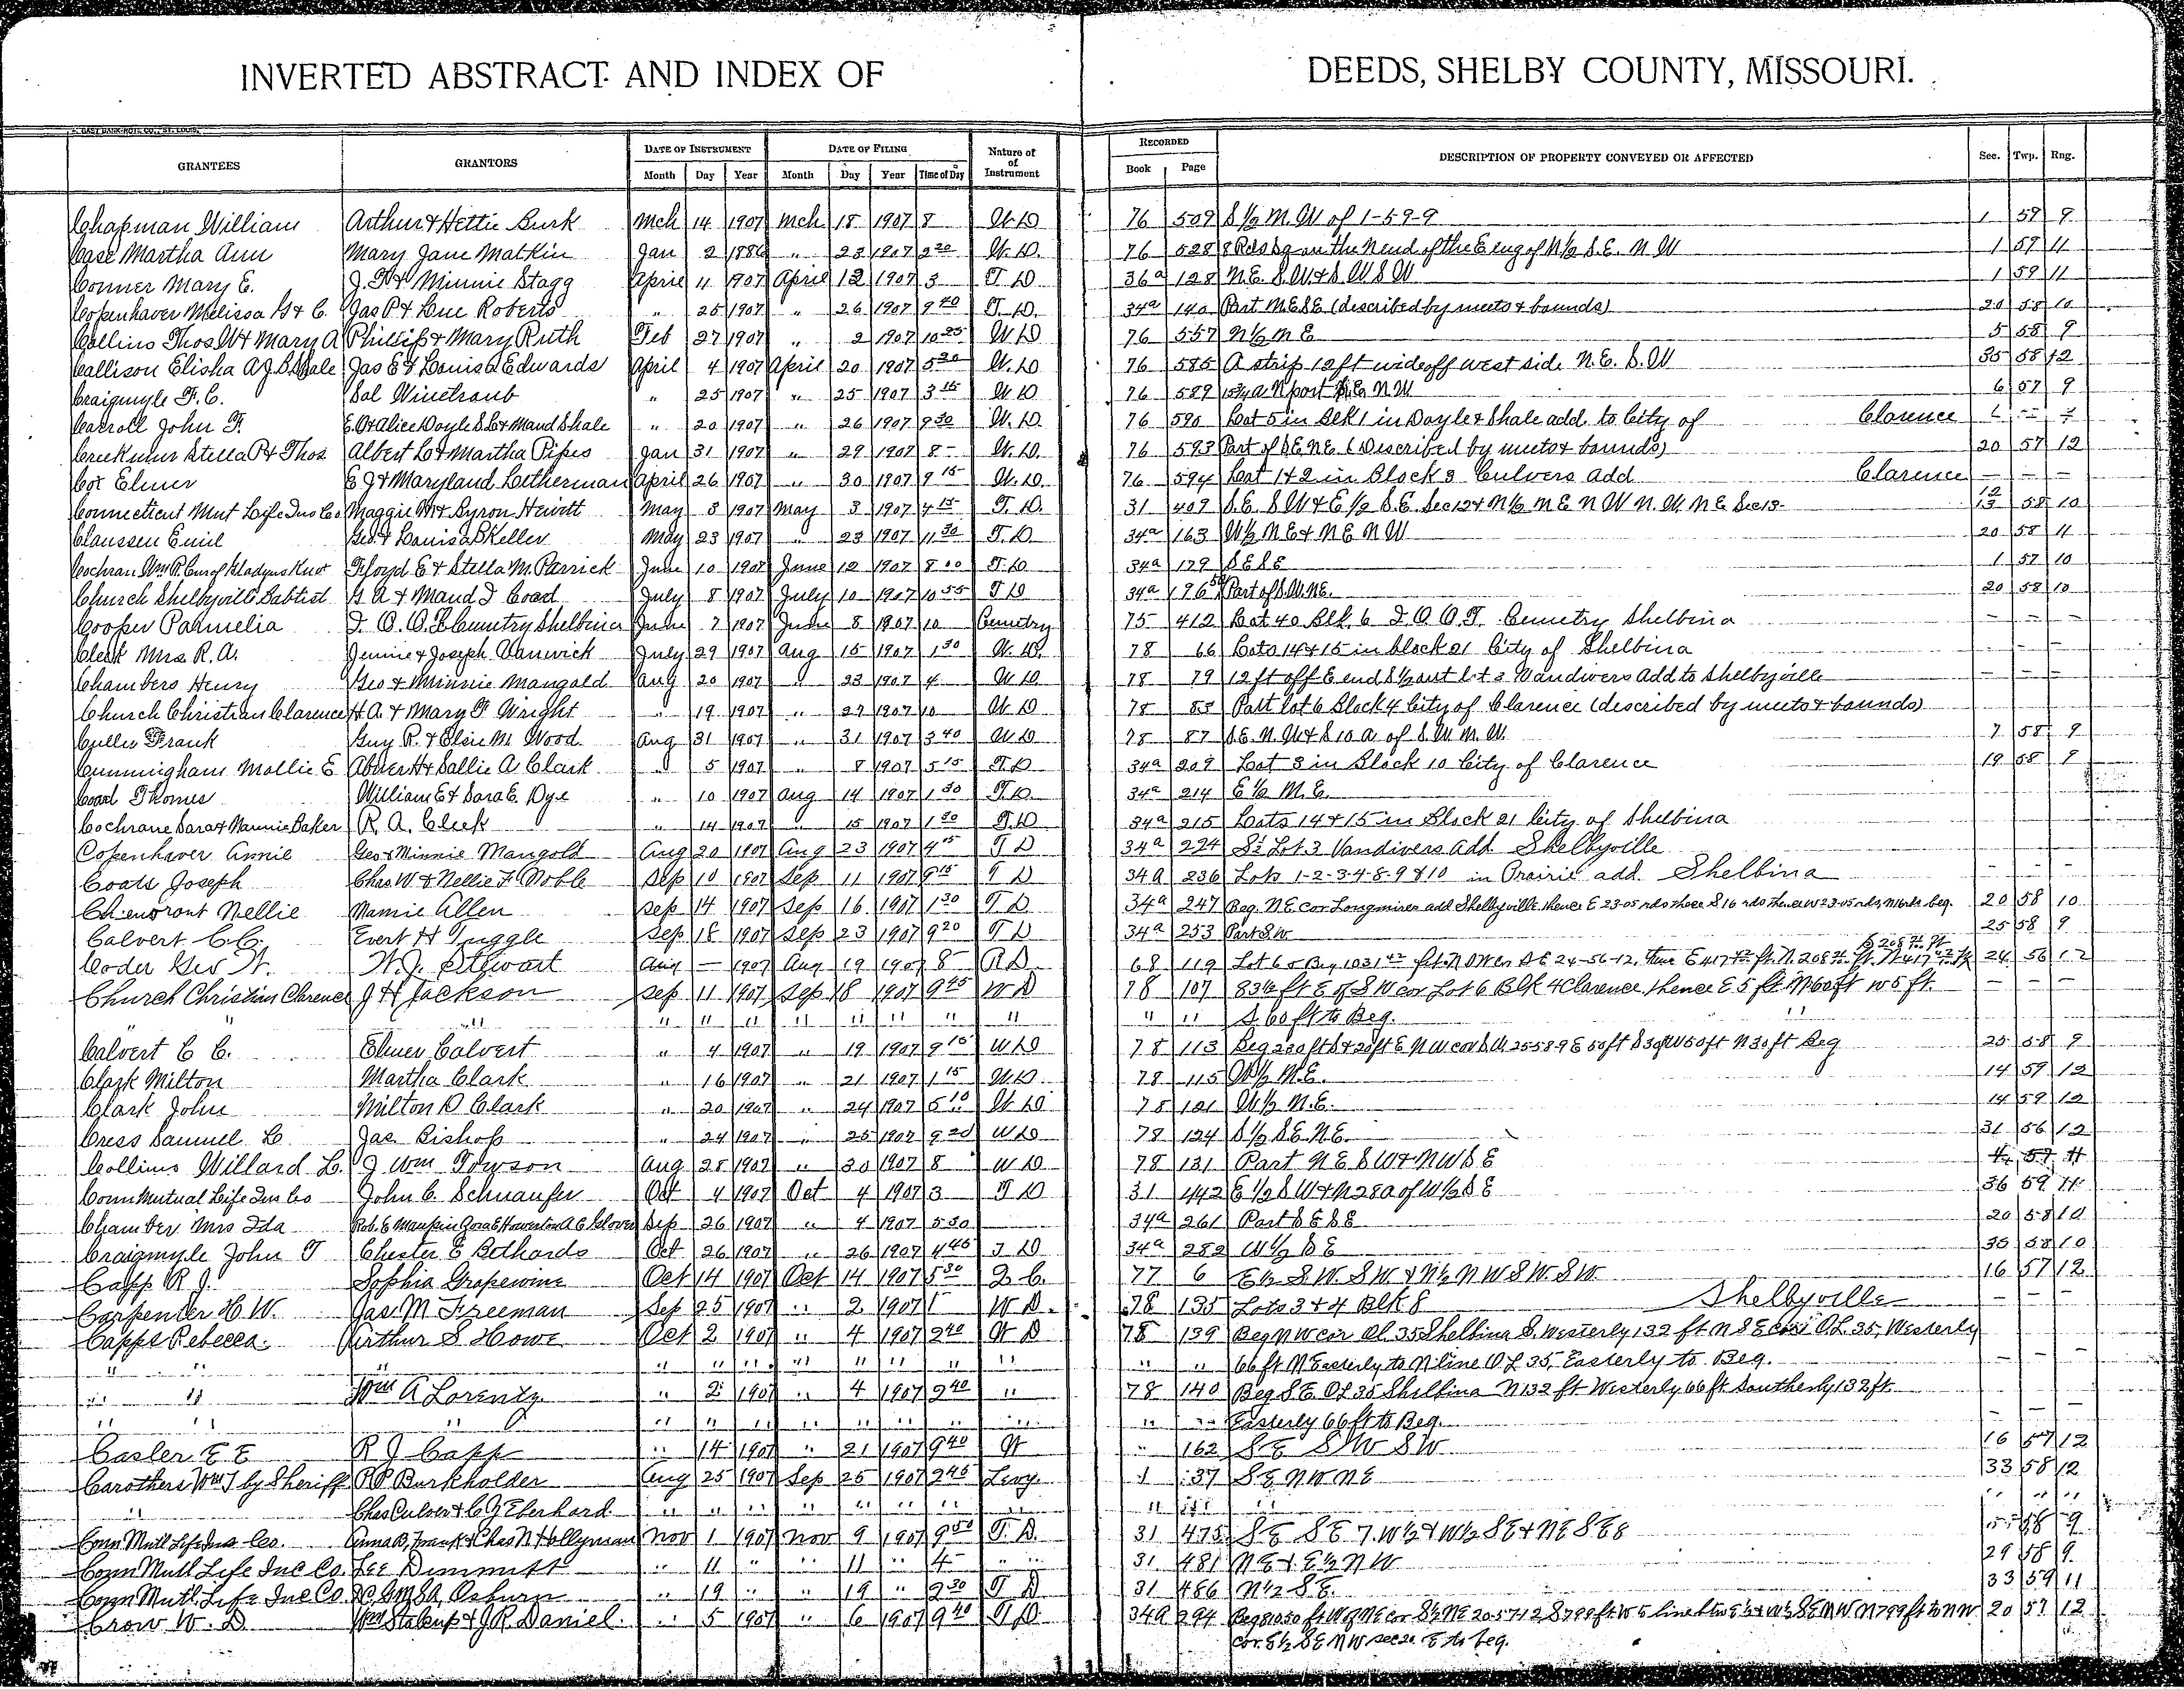 INVERTED ABSTRACT AND INDEX OF DEEDS, SHELBY COUNTY, MISSOURI.
GAST BANK NOTE CO., ST. LOUIS.
GRANTEES GRANTORS DATE OF INSTRUMENT DATE OF FILING Nature of of Instrument RECORDED DESCRIPTION OF PROPERTY CONVEYED OR AFFECTED Sec. Twp. Rng.
Month Day Year Month Day Year Time of Day Book Page
Chapman William Arthur & Hettie Burk Mch 14 1907 Mch 18 1907 8 W. D 76 509 S ½ N. W of 1-59-9 1 59 9
Case Martha Ann Mary Jane Matkin Jan 2 1886 " 23 1907 9 20 W. D. 76 528 8 Rds sq on the N end of the E eng of N ½ S. E. N. W 1 57 11
Conner Mary E. J. H & Minnie Stagg April 11 1907 April 12 1907 3 T. D 36a 128 N. E. S. W. & S. W S W 1 59 11
Copenhaver Melissa H & C. Jas P & Sue Roberts " 25 1907 " 26 1907 9 40 T. D. 34a 140 Part N. E S E (described by meets & bounds) 20 58 10
Collins Thos W & Mary A Phillip & Mary Ruth Feb 27 1907 " 2 1907 10 25 W D 76 557 N ½ N E 5 58 9
Callison Elisha A J. B Shale Jas E & Louisa Edwards April 4 1907 April 20 1907 5 20 W. D 76 585 A strip 12 ft wide off west side N. E. S. W 35 58 12
Craigmyle F. C. Sol Winetraub " 25 1907 " 25 1907 3 15 W. D 76 589 N part N W 6 57 9
Carroll John F. E. O & Alice Doyle S. L & Maud Shale " 20 1907 " 26 1907 9 30 W. D. 76 590 Lot 5 in Blk 1 in Doyle & Shale add. to City of Clarence
Stella P & Thos Albert L & Martha Pipes Jan 31 1907 " 29 1907 8 - W. D. 76 593 Part of S E N E (Described by meets & bounds) 20 57 12
Cox Elmer E J & Maryland Letherman April 26 1907 " 30 1907 9 15 W. D. 76 594 Lot 1 & 2 in Block 3 Culvers Add Clarence
Connecticut Mut Life Ins Co Maggie M & Byron Hewitt May 3 1907 May 3 1907 4 15 T. D. 31 409 S. E. S W & E ½ S. E. Sec 12 & N ½ N E N W N. W. N E Sec 13. 12 13 58 10
Claussen Emil Geo & Louisa B Keller May 23 1907 " 23 1907 11 30 T. D 34a 163 W ½ N E & N E N W 20 58 11
Cochran Wm R. Cur of Gladyus Floyd E & Stella M. Parrick June 10 1907 June 12 1907 8 00 T. D 34a 179 S E S E 1 57 10
Church Shelbyville Babtist G A & Maud J Coad July 8 1907 July 10 1907 10 55 T D 34a 196 Part of S. W. N E. 20 58 10
Cooper Parmelia I. O. O. F Cemetry Shelbina June 7 1907 June 8 1907 10 Cemetry 75 412 Lot 40 Blk. 6 I. O. O. F. Cemetry Shelbina
Cleek Mrs. R. A. Jennie & Joseph Vanwick July 29 1907 Aug 15 1907 1 30 W. D. 78 66 Lots 14 & 15 in block 21 City of Shelbina
Chambers Henry Geo & Minnie Mangold Aug 20 1907 " 23 1907 4 W D 78 79 12 ft off E end S ½ out lot 3 Vandivers Add to Shelbyville
Church Christian Clarence H. A. & Mary F Wright " 19 1907 " 27 1907 10 W. D 78 85 Part lot 6 Block 4 City of Clarence (described by meets & bounds)
Culler Frank Guy R. & Elsie M. Wood Aug 31 1907 " 31 1907 3 40 W D 78 87 S. E. N. W & S 10 a. of S. W. N. W. 7 58 9
Cunningham Mollie E Abner H & Sallie A Clark " 5 1907 " 8 1907 5 15 T. D 34a 209 Lot 3 in Block 10 City of Clarence 19 58 9
Coad Thomas William E & Sara E. Dye " 10 1907 Aug 14 1907 1 30 T. D. 34a 214 E ½ N. E.
Cochrane Sara & Nannie Baker R. A. Cleek " 14 1907 " 15 1907 1 30 T. D 34a 215 Lots 14 & 15 in Block 21 City of Shelbina
Copenhaver Annie Geo & Minnie Mangold Aug 20 1907 Aug 23 1907 4 05 T D 34a 224 S ½ Lot 3 Vandivers Add Shelbyville
Coats Joseph Chas W & Nellie F. Noble Sep 10 1907 Sep 11 1907 9 15 T D 34a 236 Lots 1-2-3-4-8-9 & 10 in Prairie add. Shelbina
Chenoront Nellie Mamie Allen Sep 14 1907 Sep 16 1907 1 30 T D. 34a 247 Beg. N E cor Longmires add Shelbyville thence E 23-05 rds thence S 16 rds thence W 23-05 rds N 16 rds beg. 20 58 10
Calvert C. C. Evert H Tuggle Sep 18 1907 Sep 23 1907 9 20 T D 34a 253 Part S. W 25 58 9
Coder Geo W. W. J. Stewart Aug — 1907 Aug 19 1907 8 R D. 68 119 Lot 6 24-56-12, 24 56 12
Church Christian Clarence J H Jackson Sep 11 1907 Sep 18 1907 9 45 W D 78 107 83½ ft E of S W cor Lot 6 Blk 4 Clarence thence E 5 ft N 60 ft W 5 ft.
" " " " " " " " " " " " S. 60 ft to Beg. "
Calvert C C. Elmer Calvert " 4 1907 " 19 1907 9 15 W D 78 113 Beg 230 ft S & 20 ft E N W cor S W 25-58-9 E 50 ft S 30 ft W 50 ft N 30 ft Beg 25 58 9
Clark Milton Martha Clark " 16 1907 " 21 1907 1 15 W. D. 78 115 W ½ N. E. 14 59 12
Clark John Milton D Clark " 20 1907 " 24 1907 5 10 W D 78 121 W ½ N. E. 14 59 12
Cress Samuel L Jas. Bishop " 24 1907 " 25 1907 9 20 W D 78 124 S ½ S E N. E. 31 56 12
Collins Willard L. J Wm Towson Aug 28 1907 " 30 1907 8 W D 78 131 Part N E S W & N W S E
Conn Mutual Life Ins Co John C. Schnaufer Oct 4 1907 Oct 4 1907 3 T D 31 442 E ½ S W & N 28 a of W ½ S E 36 59 11
Chamber Mrs Ida Rob. E Maupin Zora E Howerton A E Glover Sep 26 1907 " 4 1907 5 30 34a 261 Part S E S E 20 58 10
Craigmyle John T Chester E Bethards Oct 26 1907 " 26 1907 4 45 T D 34a 282 W ½ S E 35 58 10
Capp R. J. Sophia Grapewine Oct 14 1907 Oct 14 1907 5 30 Q. C. 77 6 E ½ S. W. S W & N ½ N W S W. S W. 16 57 12
Carpenter H. W. Jas. M Freeman Sep 25 1907 " 2 1907 1 W D. 78 135 Lots 3 & 4 Blk 8 Shelbyville
Capps Rebecca. Arthur S. Howe Oct 2 1907 " 4 1907 2 40 W D 78 139 Beg N W cor Ol 35 Shelbina S. Westerly 132 ft N S E cor O L. 35, Westerly
" " " " " " " " " " " 66 ft N Easterly to N line O L 35, Easterly to Beg.
" " Wm A Lorentz " 2 1907 " 4 1907 2 40 " 78 140 Beg S. E. O L 35 Shelbina N 132 ft Westerly 66 ft Southerly 132 ft.
" " " " " " " " " " " " Easterly 66 ft to Beg.
Casler E E R J Capp " 14 1907 " 21 1907 9 40 W " 162 S E S W S W 16 57 12
Carothers Wm J by Sheriff P. P. Burkholder Aug 25 1907 Sep 25 1907 2 45 Levy. 1 37 S E N W N E 33 58 12
" Chas Culver & C. J Eberhard " " " " " " " " " " "
Conn Mutl Life Ins Co. Anna B, Frank & Chas N Hollyman Nov 1 1907 Nov 9 1907 9 50 T. D. 31 475 S E S E 7. W ½ & W ½ S E & N E S E 8 58 9
Conn Mutl Life Ins Co. Lee Dimmitt " 11 " " 11 " 4 " 31 481 N E & E ½ N W 29 58 9
Conn Mutl Life Ins Co. Osburn " 19 " " 19 " 2 30 T D 31 486 N ½ S. E. 33 59 11
Crow W. D Wm Stalcup & J. R. Daniel. " 5 1907 " 6 1907 9 40 T D. 34a 294 Beg 1050 ft W of N E cor S ½ N E 20-57-12 S 799 ft W to line btw E ½ & W ½ S E N W N 799 ft to N W 20 57 12
cor. E ½ S E N W sec 20 E to beg.